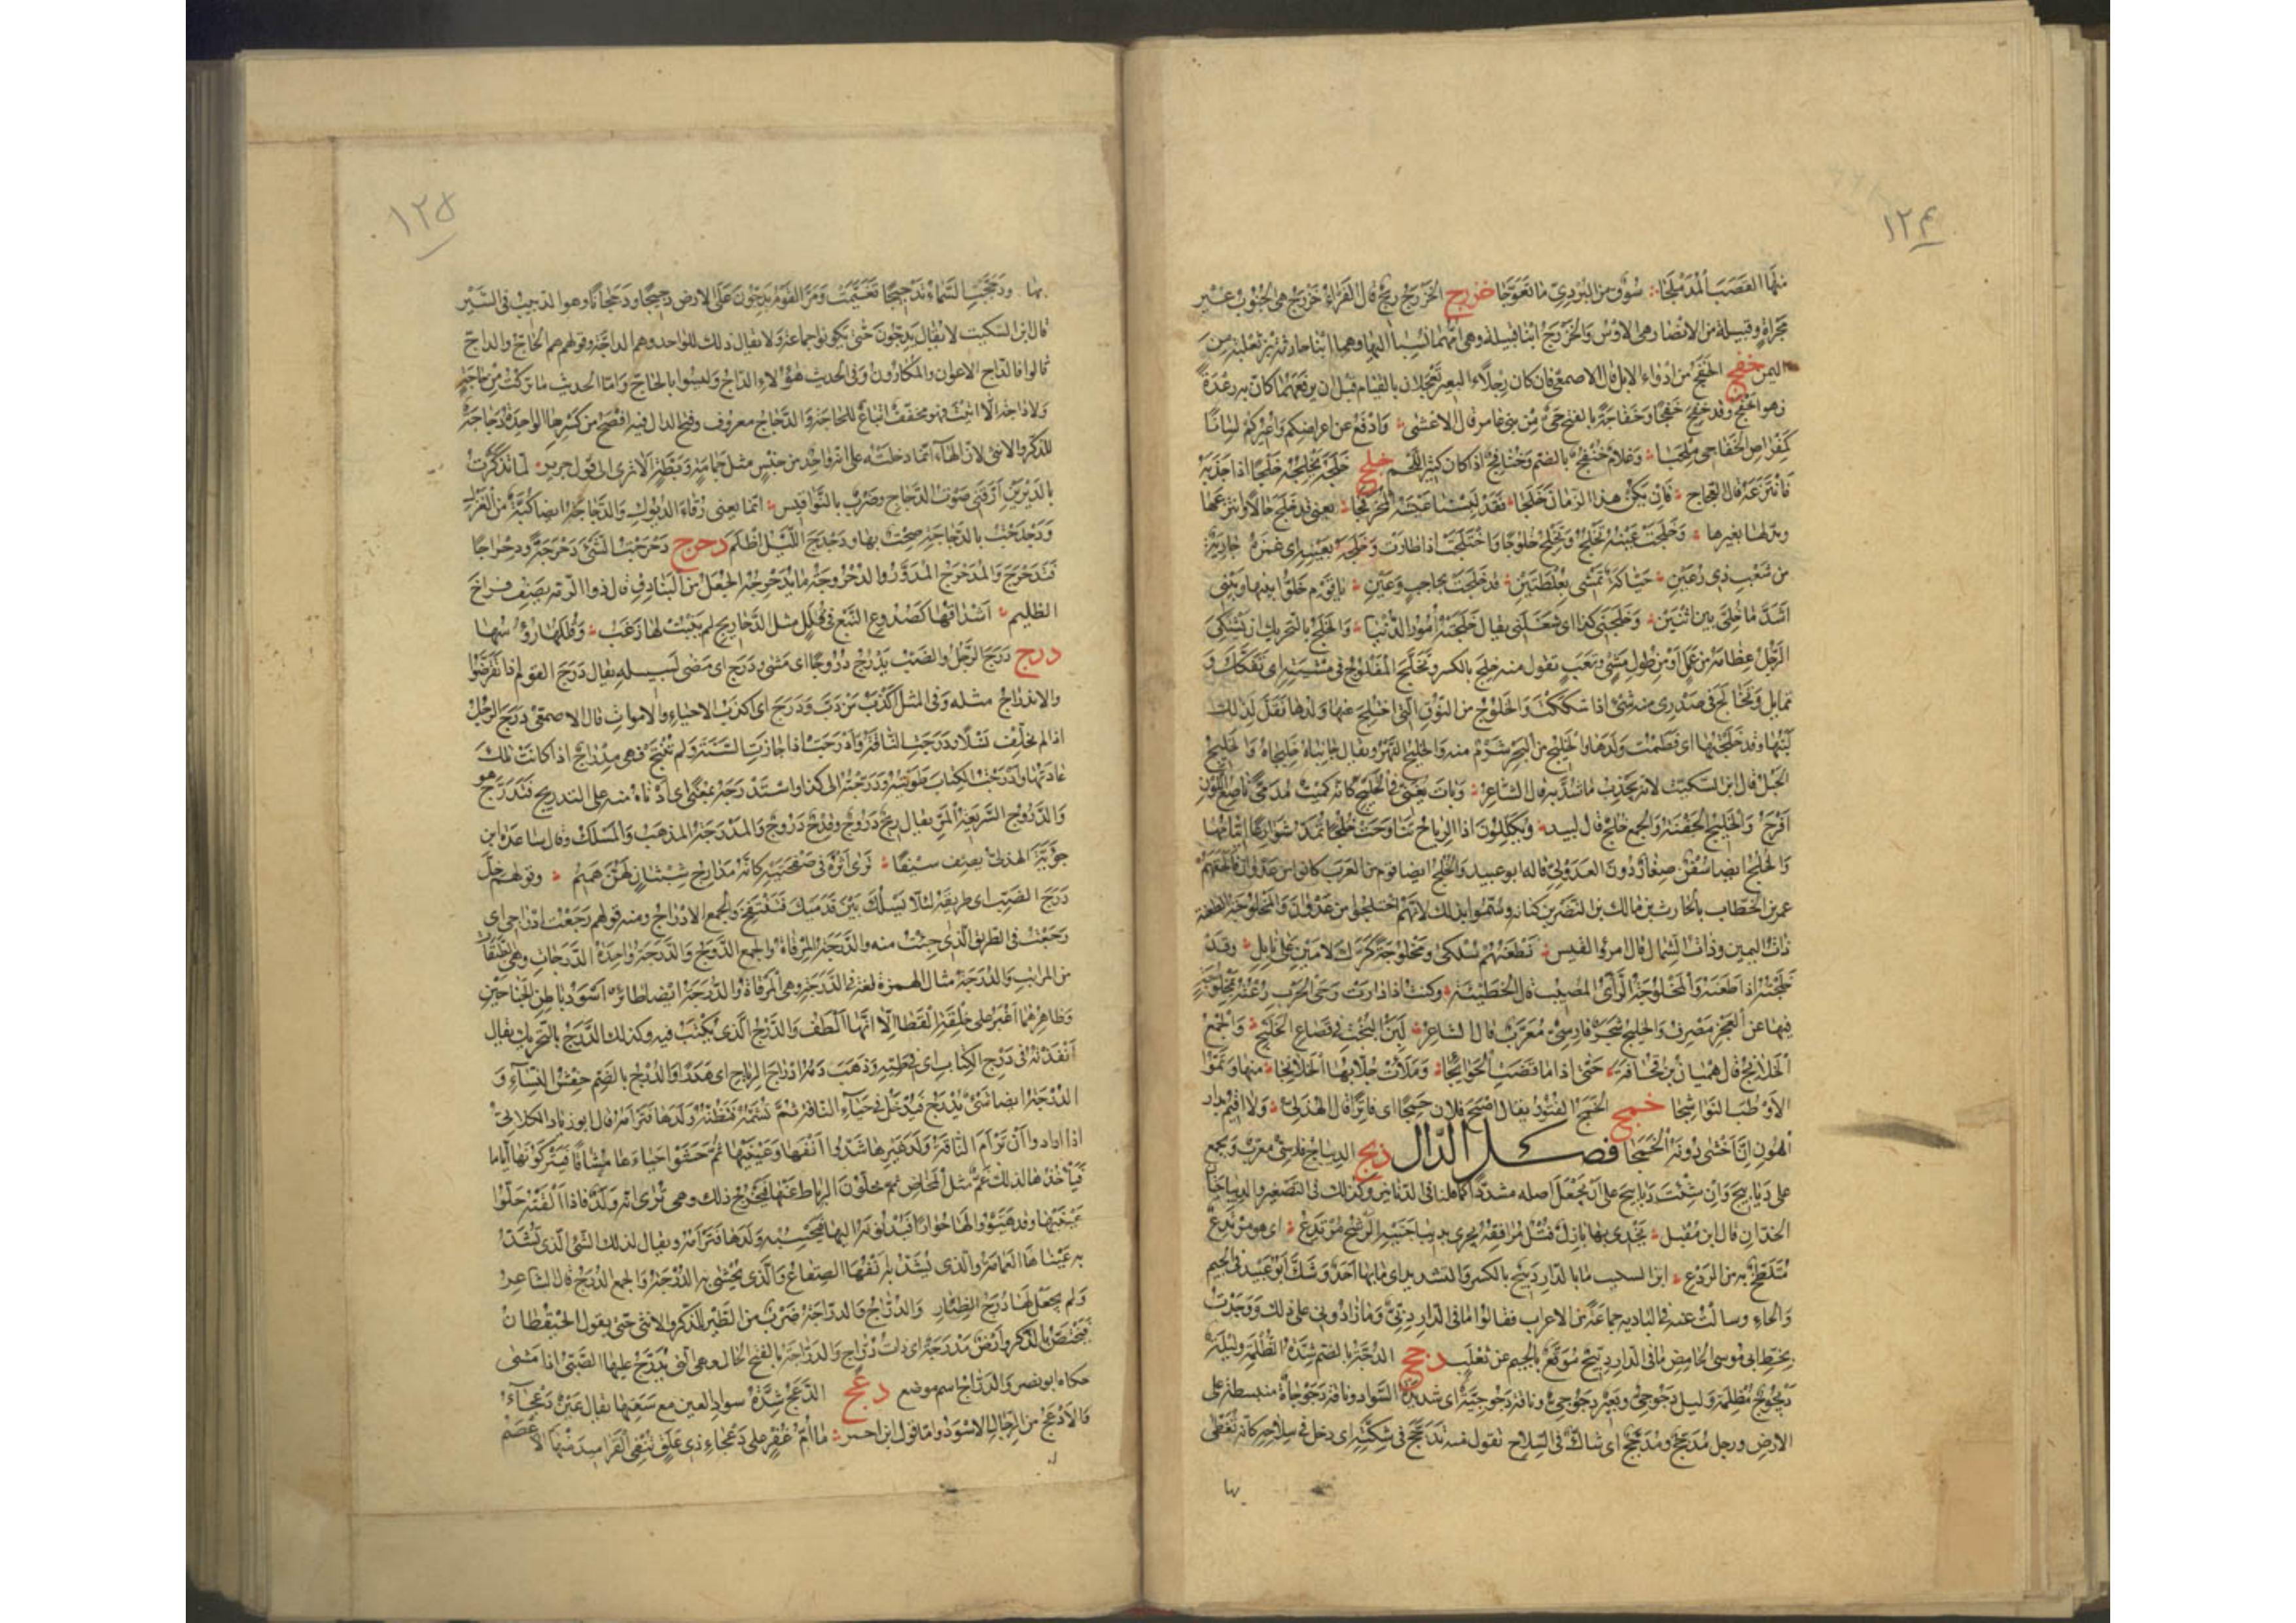 ١٢٤
منها القصب المدملجا سوق من البردي ما تعوجا خزرج الخزرج ريح قال الفراء خزرج هي الجنوب غير
مجراة وقبيلة من الانصار وهي الاوس والخزرج ابنا قيلة وهي امهما نسبا اليها وهما ابنا حارثة بن ثعلبة من
اليمن خفج الخفج من ادواء الابل قال الاصمعي فان كان رجلا البعير تعجلان بالقيام قبل ان يرفعهما كان به رعدة
فهو اخفج وقد خفج خفجا وخفاجة بالفتح حي من بني عامر قال الاعشى وادفع عن اعراضكم واعيركم لسانا
كمقراص الخفاجي ملحبا وغلام خنفج بالضم وخنافج اذا كان كثير اللحم خلج خلجه يخلجه خلجا اذا جذبه
فانتزعه قال العجاج فان يكن هذا الزمان خلجا فقد لبسنا عيشه المخرفجا يعني قد خلج حالا وانتزعها
وبدلها بغيرها وخلجت عينه تخلج وتخلج خلوجا واختلجت اذا طارت وخلجه بعينه اي غمزه جارية
من شعب ذي رعين حياكة تمشي بعلطتين قد خلجت بحاجب وعين يا قوم خلوا بينها وبيني
اشد ما خلي بين اثنين وخلجني كذا اي شغلني يقال خلجته امور الدنيا والخلج بالتحريك ان يشتكي
الرجل عظامه من عمل او من طول مشي وتعب تقول منه خلج بالكسر وتخلج المفلوج في مشيته اي تفكك و
تمايل وتخالج في صدري منه شيء اذا شككت والخلوج من النوق التي اختلج عنها ولدها فقل لذلك
لبنها وقد خلجتها اي فطمت ولدها والخليج من البحر شرم منه والخليج النهر ويقال جانباه خليجاه والخليج
الحبل قال ابن السكيت لانه يجذب ما شد به قال الشاعر وبات يغني في الخليج كانه كميت مدمى ناصع اللون
اقرح والخليج الجفنة والجمع خلج قال لبيد ويكللون اذا الرياح تناوحت خلجا تمد شوارعا ايتامها
والخلج ايضا سفن صغار دون العدولي قاله ابو عبيد والخلج ايضا قوم من العرب كانوا من عدوان فالحقهم
عمر بن الخطاب بالحارث بن مالك بن النضر بن كنانة وسموا بذلك لانهم اختلجوا من عدوان والمخلوجة الطعنة
ذات اليمين وذات الشمال قال امرؤ القيس نطعنهم سلكى ومخلوجة كرك لامين على نابل وقد
خلجته اذا طعنته والمخلوجة الراي المصيب قال الحطيئة وكنت اذا دارت رحى الحرب رعته بمخلوجة
فيها عن العجز مصرف والخلنج شجر فارسي معرب قال الشاعر لبن البخت في قصاع الخلنج والجمع
الخلانج قال هميان بن قحافة حتى اذا ما قضت الحوائجا وملأت حلابها الخلانجا منها وثموا
الاوطب النواشجا خمج الخمج الفتور يقال اصبح فلان خمجا اي فاترا قال الهذلي ولا اقيم بدار
الهون ان اخشى دونه الخمجا فصل الدال دبج الديباج فارسي معرب ويجمع
على ديابيج وان شئت دبابيج على ان تجعل اصله مشددا كما قلنا في الدنانير وكذلك في التصغير والديباجتان
الخدان قال ابن مقبل يخدي بها بازل فتل مرافقه يجري بديباجتيه الرشح مرتدع اي هو مرتدع
متلطخ به من الردع ابن السكيت ما بالدار دبيج بالكسر والتشديد اي ما بها احد وشك ابو عبيد في الجيم
والحاء وسالت عنه في البادية جماعة من الاعراب فقالوا ما في الدار دبي وما زادوني على ذلك ووجدت
بخط ابي موسى الحامض ما في الدار دبيج موقع بالجيم عن ثعلب دجج الدجة بالضم شدة الظلمة وليلة
ديجوج مظلمة وليل دجوجي وبعير دجوجي وناقة دجوجية اي شديدة السواد وناقة دجوجاة منبسطة على
الارض ورجل مدجج ومدجج اي شاك في السلاح تقول منه تدجج في شكته اي دخل في سلاحه كانه تغطى
بها
١٢٥
بها ودججت السماء تدجيجا تغيمت ومر القوم يدجون على الارض دجيجا ودججانا وهو الدبيب في السير
قال ابن السكيت لا يقال يدجون حتى يكونوا جماعة ولا يقال ذلك للواحد وهم الداجة وقولهم هم الحاج والداج
قالوا فالداج الاعوان والمكارون وفي الحديث هؤلاء الداج وليسوا بالحاج واما الحديث ما تركت من حاجة
ولا داجة الا اتيت فهو مخفف اتباع للحاجة والدجاج معروف وفتح الدال فيه افصح من كسرها الواحدة دجاجة
للذكر والانثى لان الهاء انما دخلته على انه واحد من جنس مثل حمامة وبطة الا ترى الى قول جرير لما تذكرت
بالديرين ارقني صوت الدجاج وضرب بالنواقيس انما يعني زقاء الديوك والدجاجة ايضا كبة من الغزل
ودجدجت بالدجاجة صحت بها ودجدج الليل اظلم دحرج دحرجت الشيء دحرجة ودحراجا
فتدحرج والمدحرج المدور والدحروجة ما يدحرجه الجعل من البنادق قال ذو الرمة يصف فراخ
الظليم اشداقها كصدوع النبع في قلل مثل الدحاريج لم ينبت لها زغب وقللها رؤسها
درج درج الرجل والضب يدرج دروجا اي مشى ودرج اي مضى لسبيله يقال درج القوم اذا انقرضوا
والاندراج مثله وفي المثل اكذب من دب ودرج اي اكذب الاحياء والاموات قال الاصمعي درج الرجل
اذا لم يخلف نسلا ودرجت الناقة وادرجت اذا جازت السنة ولم تنتج فهي مدراج اذا كانت تلك
عادتها وادرجت الكتاب طويته ودرجته الى كذا واستدرجه بمعنى اي ادناه منه على التدريج فتدرج هو
والدروج الريح السريعة المر يقال ريح دروج وقدح دروج والمدرجة المذهب والمسلك وقال ساعدة ابن
جؤية الهذلي يصف سيفا ترى اثره في صفحتيه كانه مدارج شبثان لهن هميم وقولهم خل
درج الضب اي طريقه لئلا يسلك بين قدميك فتنتفخ والجمع الادراج ومنه قولهم رجعت ادراجي اي
رجعت في الطريق الذي جئت منه والدرجة المرقاة والجمع الدرج والدرجة واحدة الدرجات وهي الطبقات
من المراتب والدرجة مثال الهمزة لغة في الدرجة وهي المرقاة والدرجة ايضا طائر اسود باطن الجناحين
وظاهرهما اغبر على خلقة القطا الا انها الطف والدرج الذي يكتب فيه وكذلك الدرج بالتحريك يقال
انفذته في درج الكتاب اي في طيه وذهب دمه ادراج الرياح اي هدرا والدرج بالضم حفش النساء و
الدرجة ايضا شيء يدرج فيدخل في حياء الناقة ثم تشمه فتظنه ولدها فترامه قال ابو زياد الكلابي
اذا ارادوا ان ترأم الناقة ولد غيرها شدوا انفها وعينيها ثم حشوا حياءها مشاقة فيتركونها اياما
فيأخذها لذلك غم مثل المخاض ثم يحلون الرباط عنها فيخرج ذلك وهي ترى انه ولد فاذا القته حلوا
عينيها وقد هيئوا لها حوارا فيدنونه اليها فتحسبه ولدها فترامه ويقال لذلك الشيء الذي تشد
به عيناها الغمامة والذي يشد به انفها الصقاع والذي يحشى به الدرجة والجمع الدرج قال الشاعر
ولم يجعل لها درج الظئار والدراج والدراجة ضرب من الطير للذكر والانثى حتى يقول الحيقطان
فيختص بالذكر وارض مدرجة اي ذات دراج والدراجة بالفتح الحال وهي التي يدرج عليها الصبي اذا مشى
حكاه ابو نصر والدراج اسم موضع دعج الدعج شدة سواد العين مع سعتها يقال عين دعجاء
فالادعج من الرجال الاسود واما قول ابن احمر ما ام غفر على دعجاء ذي علق ينفي القراميد عنها الاعصم